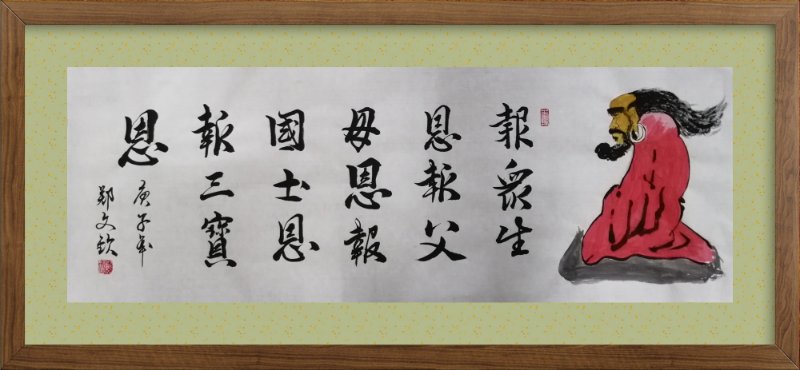 報眾生
恩報父
母恩報
國士恩
報三寶
恩
庚子年
鄭文欽